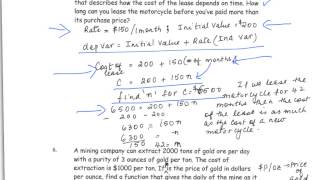 that describes how the cost of the lease depends on time. How
long can you lease the motorcycle before you've paid more than
its purchase price?
Rate = $150/1month ; Initial Value = $200
dep var = Initial Value + Rate (Ind var)
Cost of lease = 200 + 150 (# of months)
C = 200 + 150n
find 'n' for C = $6500
6500 = 200 + 150n
- 200 - 200
6300 = 150n
6300/150 = n
42 = n
If we lease the
motorcycle for 42
months then the cost
of the lease is as much
as the cost of a new
motorcycle.
6. A mining company can extract 2000 tons of gold ore per day
with a purity of 3 ounces of gold per ton. The cost of
extraction is $1000 per ton. If p is the price of gold in dollars
per ounce, find a function that gives the daily of the mine as
$p/oz → Price of gold